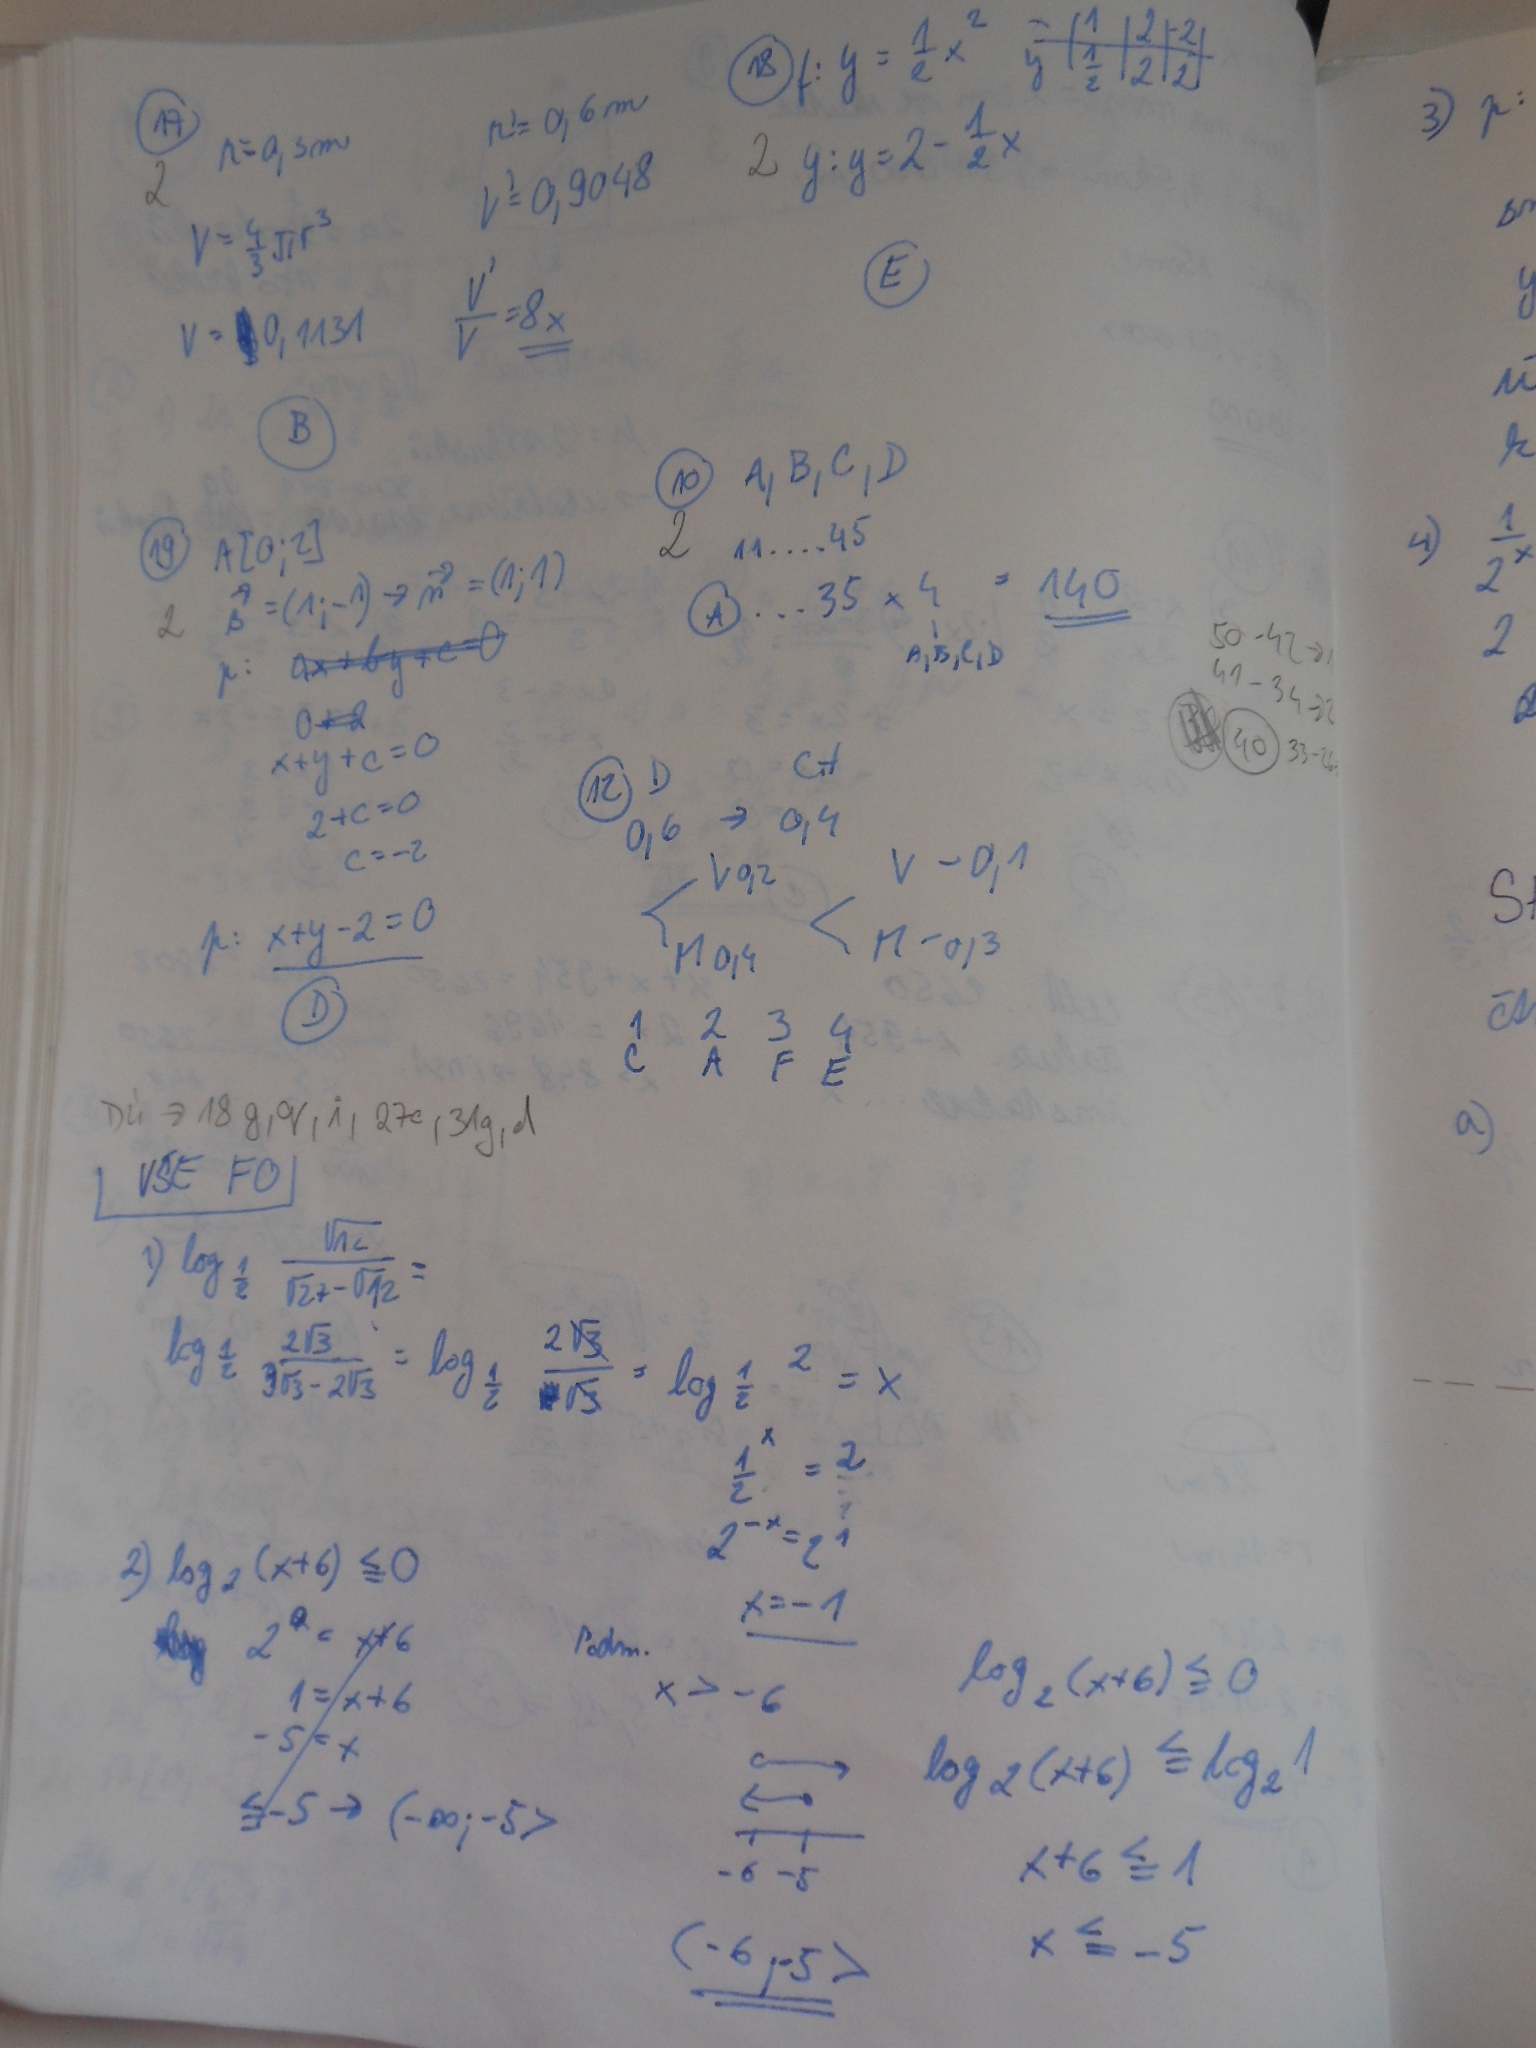 17
2
r=0,3m
r'=0,6m
V=4/3 πr³
V'=0,9048
V=0,1131
V'/V=8x
B
18 f: y = 1/2 x²
1 | 2 | -2
y | 1/2 | 2 | 2
2 y: y=2-1/2 x
E
19 A[0;2]
2 =(1;-1)→n=(1;1)
p: ax+by+c=0
0+2
x+y+c=0
2+c=0
c=-2
p: x+y-2=0
D
10 A, B, C, D
2 11....45
A ...35 x 4 = 140
A,B,C,D
50-42→1
41-34→2
40 33-
12 D
0,6 → 0,4
V 0,2
M 0,4
V - 0,1
M - 0,3
1 2 3 4
C A F E
DÚ → 18 g, , i, 27c, 31g, d
VŠE FO
1) log 1/2 √12/(√27-√12) =
log 1/2 2√3/(3√3-2√3) = log 1/2 2√3/√3 = log 1/2 2 = x
1/2^x = 2
2^-x = 2^1
x=-1
2) log₂ (x+6) ≦ 0
2^0 = x+6
1=x+6
-5=x
≦-5 → (-∞;-5>
Podm.
x > -6
-6 -5
(-6;-5>
log₂ (x+6) ≦ 0
log₂ (x+6) ≦ log₂ 1
x+6 ≦ 1
x ≦ -5
3) p:
y
4) 1/2^x
2
a)